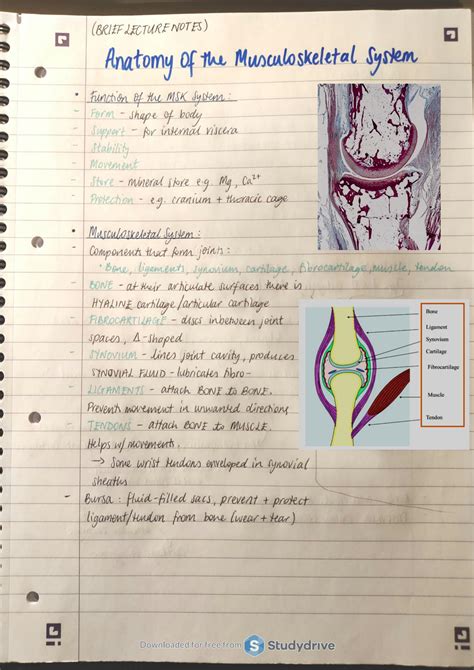 (BRIEF LECTURE NOTES)
Anatomy Of the Musculoskeletal System
• Function of the MSK System:
- Form - shape of body
- Support - for internal viscera
- Stability
- Movement
- Store - mineral store e.g. Mg, Ca²⁺
- Protection - e.g. cranium + thoracic cage
• Musculoskeletal System:
- Components that form joints:
• Bone, ligaments, synovium, cartilage, fibrocartilage, muscle, tendon
- BONE - at their articulate surfaces there is
HYALINE cartilage/articular cartilage
- FIBROCARTILAGE - discs inbetween joint
spaces, Δ-shaped
- SYNOVIUM - lines joint cavity, produces
SYNOVIAL FLUID - lubricates fibro-
- LIGAMENTS - attach BONE to BONE.
Prevent movement in unwanted directions
- TENDONS - attach BONE to MUSCLE.
Helps w/ movements.
→ Some wrist tendons enveloped in synovial
sheaths
- Bursa: fluid-filled sacs, prevent + protect
ligament/tendon from bone (wear + tear)
Bone
Ligament
Synovium
Cartilage
Fibrocartilage
Muscle
Tendon
Downloaded for free from S Studydrive